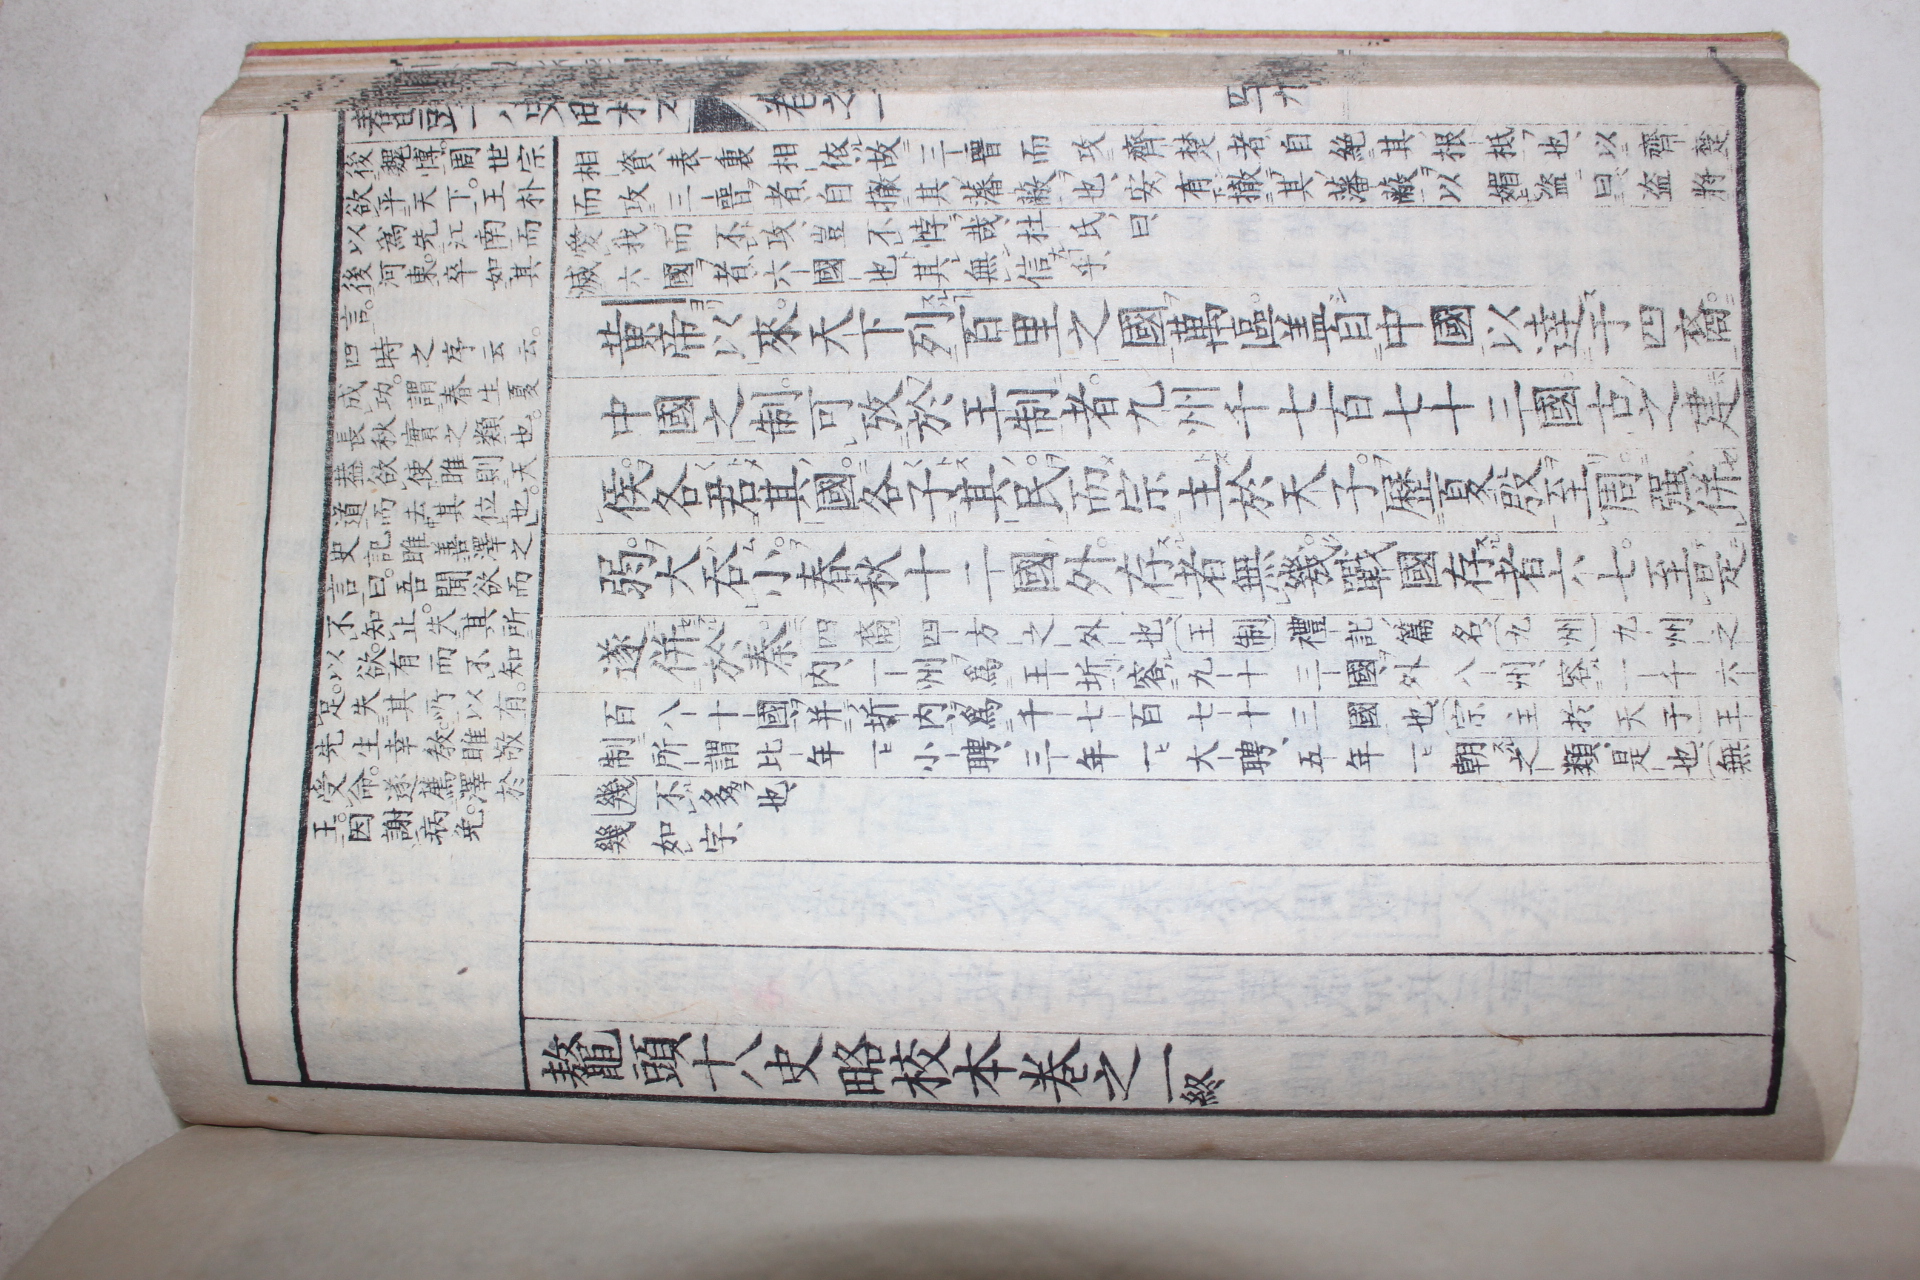 後魏博。周世宗
欲平天下。王朴
以爲先江南而
後河東。卒如其
言。
四時之序云云。
成功。謂春生夏
長秋實之類也。
葢欲使雎則天
道而去其位也。
史記雎善澤之
言曰。吾聞欲而
不知止。失其所
以欲。有而不知
足。失其所以有。
先生幸教。雎敬
受命。遂薦澤於
王。因謝病免。
相資、表裏相依、故三晉而攻齊楚者、自絶其根柢也、以齊楚
而攻三晉者、自撤其藩蔽也、安有撤其藩蔽以媚盜、曰、盜將
愛我而不攻、豈不悖哉、杜氏曰、
滅六國者、六國也、其無信乎、
黄帝以來天下列百里之國萬區盖自中國以達于四裔
中國之制可攷於王制者九州千七百七十三國古之建
侯各君其國各子其民而宗主於天子歷夏殷至周强併
弱大呑小春秋十二國外存者無幾戰國存者六七至是
遂併於秦
四裔四方之外也、王制禮記篇名、九州九州之
内、一州爲王圻、容九十三國、外八州、容一千六
百八十國、并圻内、爲千七百七十三國也、宗主於天子王
制所謂比年一小聘、三年一大聘、五年一朝之類、是也、無
幾不多也、
幾如字、
鼇頭十八史略校本卷之一終
卷之一
四十九